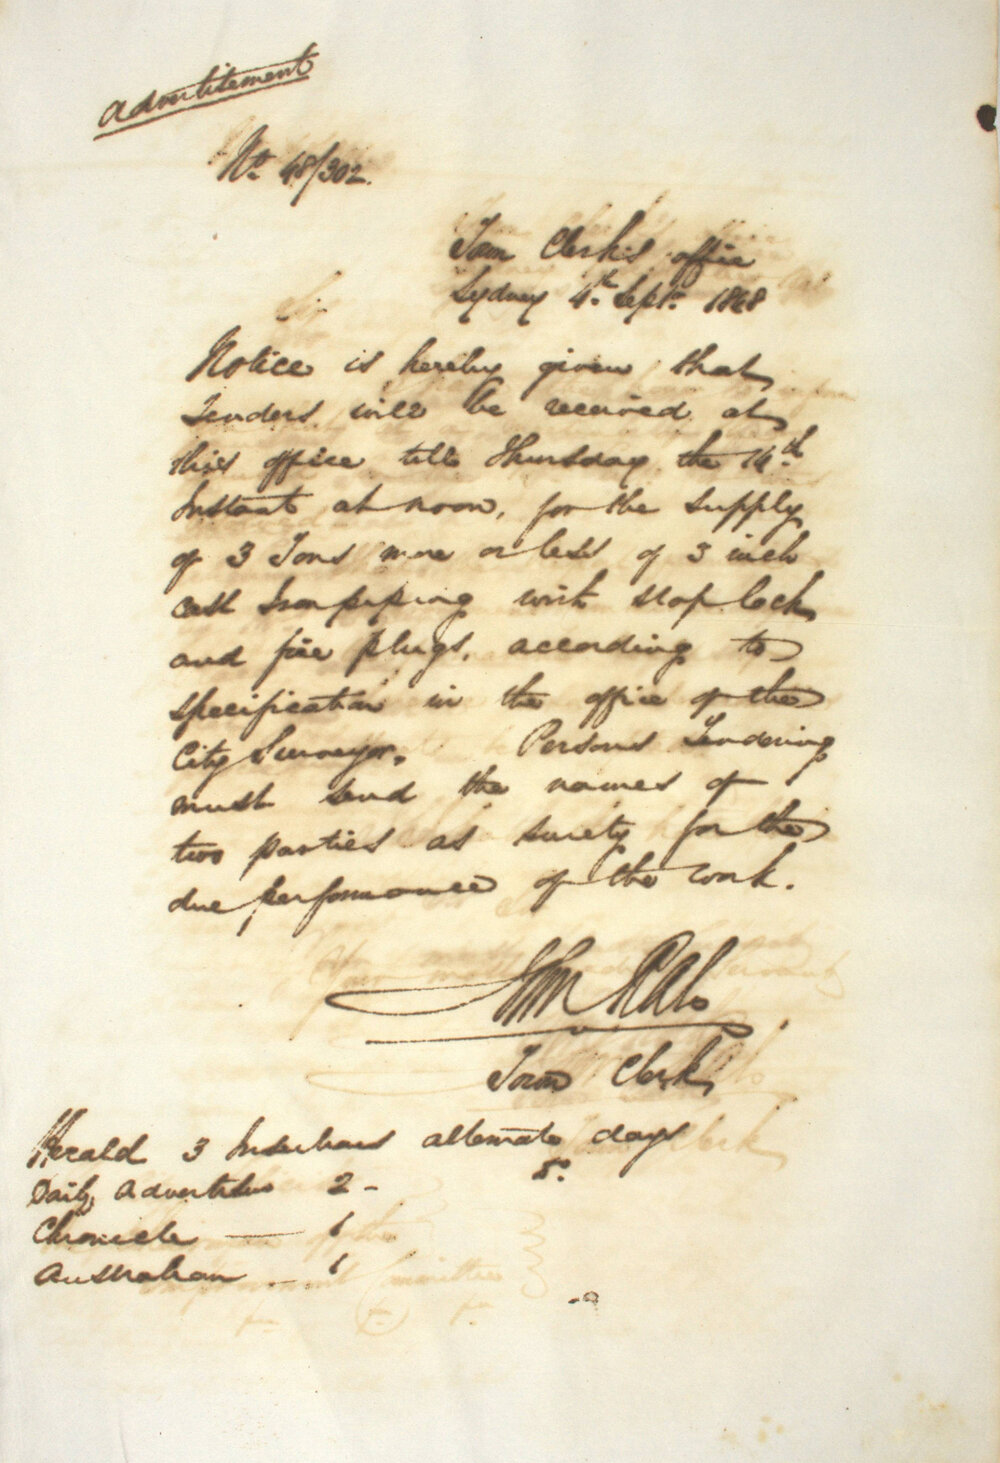 Advertisement
No. 48/302.
Town Clerk's office
Sydney 4th Septr. 1848
Notice is hereby given that
Tenders will be received at
this office till Thursday the 14th
Instant at noon, for the supply
of 3 Tons more or less of 3 inch
cast Iron piping with stop Cock
and fire plugs, according to
specification in the office of the
City Surveyor. Persons Tendering
must send the names of
two parties as surety for the
due performance of the work.
John
Town Clerk
Herald 3 Insertions alternate days
Daily Advertiser 2 - Do.
Chronicle — 1
Australian - 1